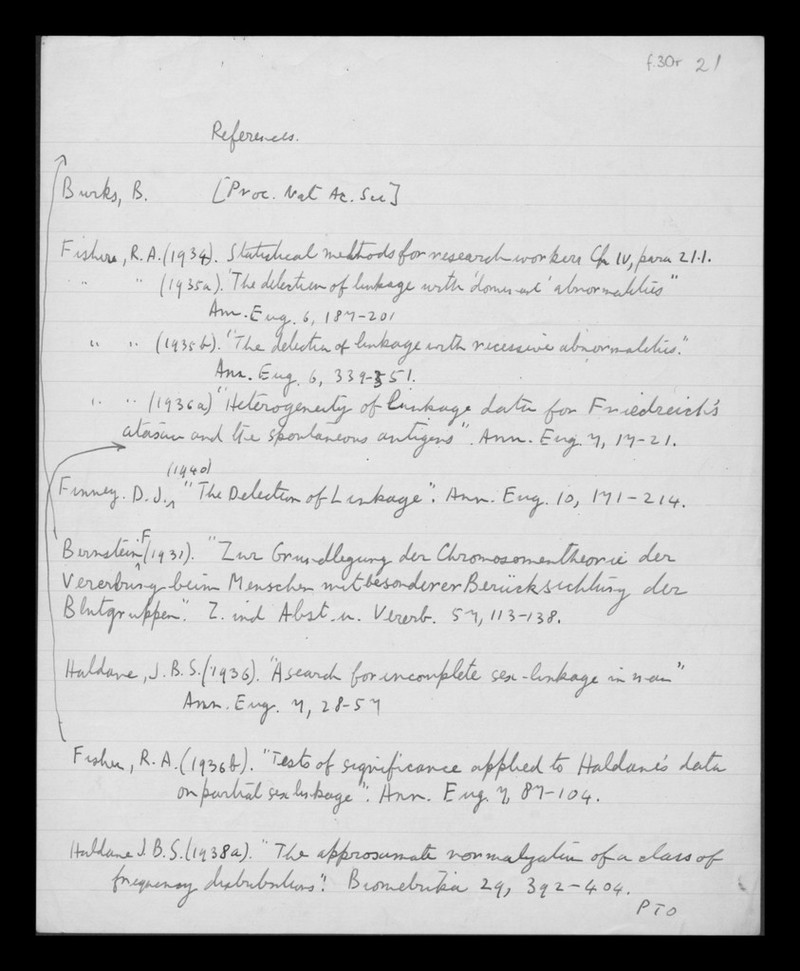 f.30r 21
References.
Burks, B. [Proc. Nat Ac. Sci]
Fisher, R.A. (1934). Statistical methods for research workers Ch IV, para 21.1.
" " (1935a). 'The detection of linkage with 'dominant' abnormalities"
Ann. Eug. 6, 187-201
" " (1935b). "The detection of linkage with recessive abnormalities."
Ann. Eug. 6, 339-351.
" " (1936a) "Heterogeneity of linkage data for Friedreich's
ataxia and the spontaneous antigens". Ann. Eug. 7, 17-21.
(1940)
Finney. D.J., "The Detection of Linkage". Ann. Eug. 10, 171-214.
Bernstein F (1931). "Zur Grundlegung der Chromosomentheorie der
Vererbung beim Menschen mit besonderer Berücksichtung der
Blutgruppen". Z. ind Abst. u. Vererb. 57, 113-138.
Haldane, J.B.S. (1936). "A search for incomplete sex-linkage in man"
Ann. Eug. 7, 28-57
Fisher, R.A. (1936b). "Tests of significance applied to Haldane's data
on partial sex linkage". Ann. Eug. 7, 87-104.
Haldane J.B.S. (1938a). "The approximate normalization of a class of
frequency distributions". Biometrika 29, 392-404.
PTO